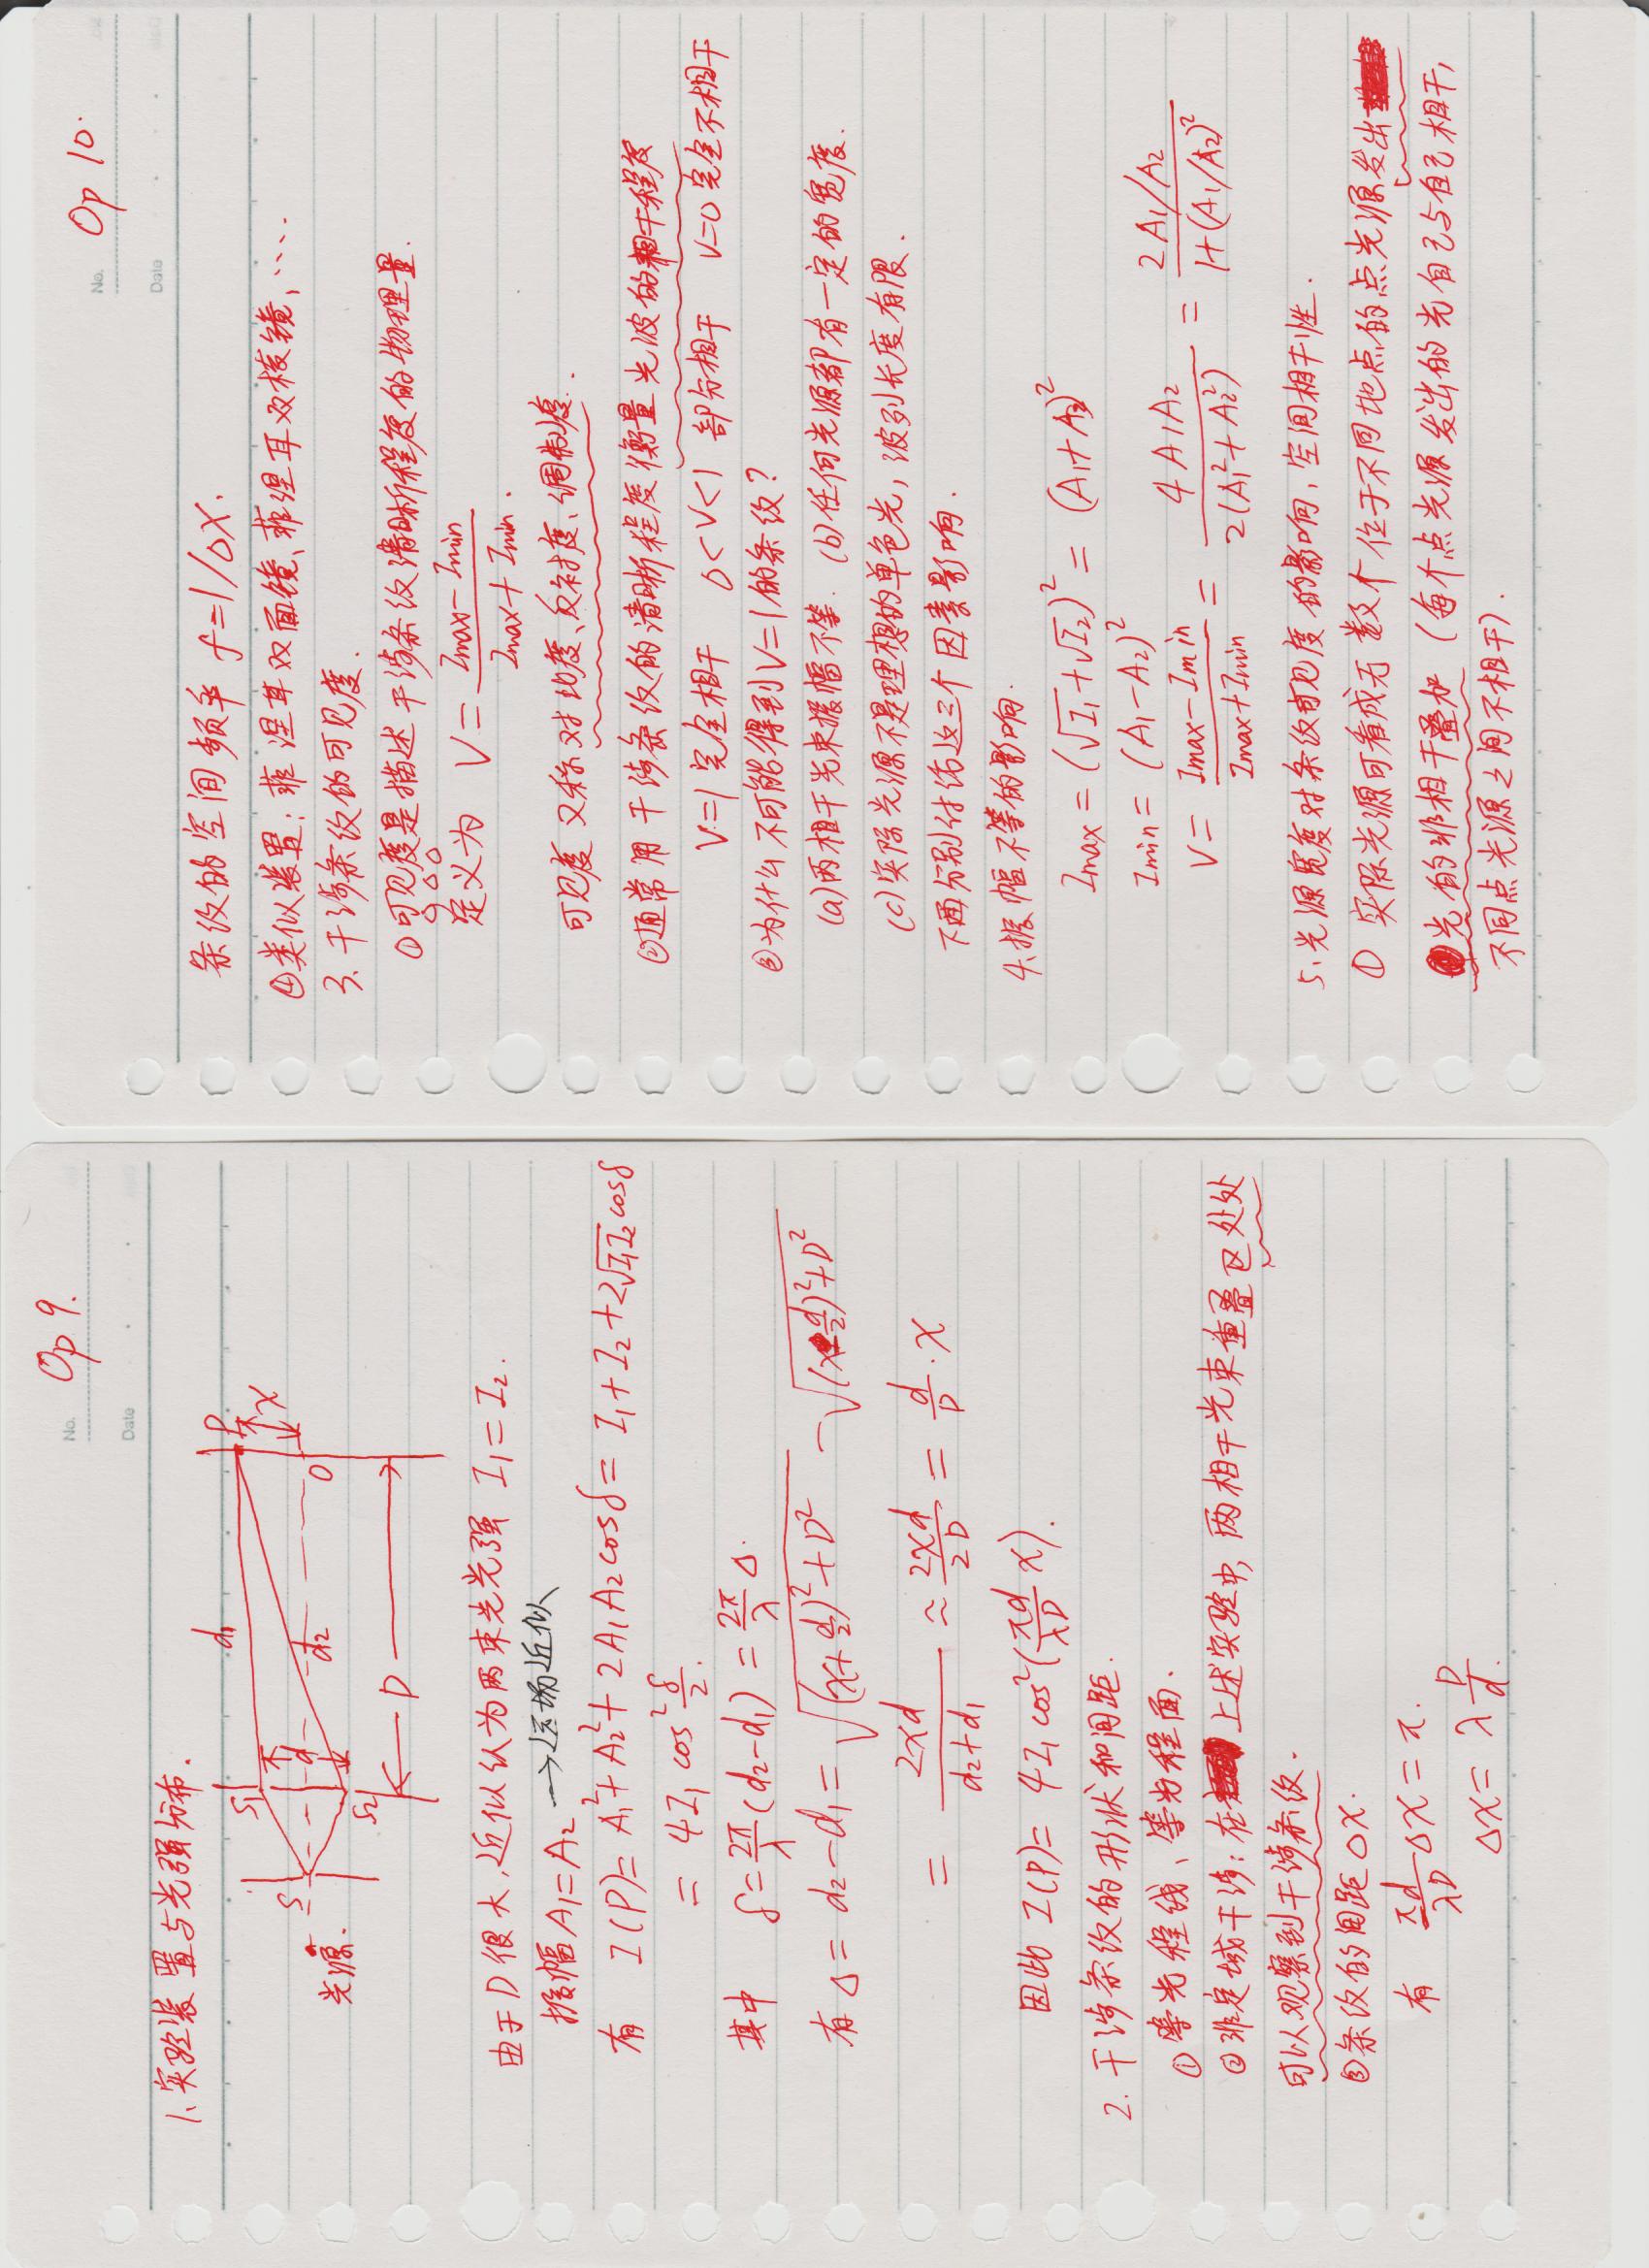 No. Op 9.
Date
1、实验装置与光强分布.
S1 d1 P
S d x
光源. d2 O
S2
D
由于D很大,近似认为两束光光强 I₁=I₂.
振幅A₁=A₂ →远场近似
有 I(P)= A₁²+A₂²+2A₁A₂cosδ= I₁+I₂+2√I₁I₂cosδ
= 4I₁cos²δ/2.
其中 δ=2π/λ(d₂-d₁)=2π/λ Δ.
有Δ= d₂-d₁= √(x+d/2)²+D² -√(x-d/2)²+D²
= 2xd/(d₂+d₁) ≈ 2xd/2D = d/D·x
因此 I(P)= 4I₁cos²(πd/λD x).
2. 干涉条纹的形状和间距.
①等光程线、等光程面.
②非定域干涉:在上述实验中,两相干光束重叠区处处
可以观察到干涉条纹.
③条纹的间距Δx.
有 πd/λD Δx=π.
Δx= λ D/d.
No. Op 10.
Date
条纹的空间频率 f=1/Δx.
④类似装置:菲涅耳双面镜、菲涅耳双棱镜,····
3、干涉条纹的可见度.
①可见度是描述干涉条纹清晰程度的物理量.
定义为 V= (Imax-Imin)/(Imax+Imin).
可见度又称对比度、反衬度、调制度.
②通常用干涉条纹的清晰程度衡量光波的相干程度
V=1完全相干 0<V<1 部分相干 V=0完全不相干
③为什么不可能得到V=1的条纹?
(a)两相干光束振幅不等. (b)任何光源都有一定的宽度.
(c)实际光源不是理想的单色光,波列长度有限.
下面分别讨论这三个因素影响.
4、振幅不等的影响.
Imax= (√I₁+√I₂)²= (A₁+A₂)²
Imin= (A₁-A₂)²
V= (Imax-Imin)/(Imax+Imin) = 4A₁A₂/2(A₁²+A₂²) = 2A₁/A₂/1+(A₁/A₂)²
5、光源宽度对条纹可见度的影响,空间相干性.
① 实际光源可看成无数个位于不同地点的点光源发出
光的非相干叠加(每个点光源发出的光自己与自己相干,
不同点光源之间不相干).